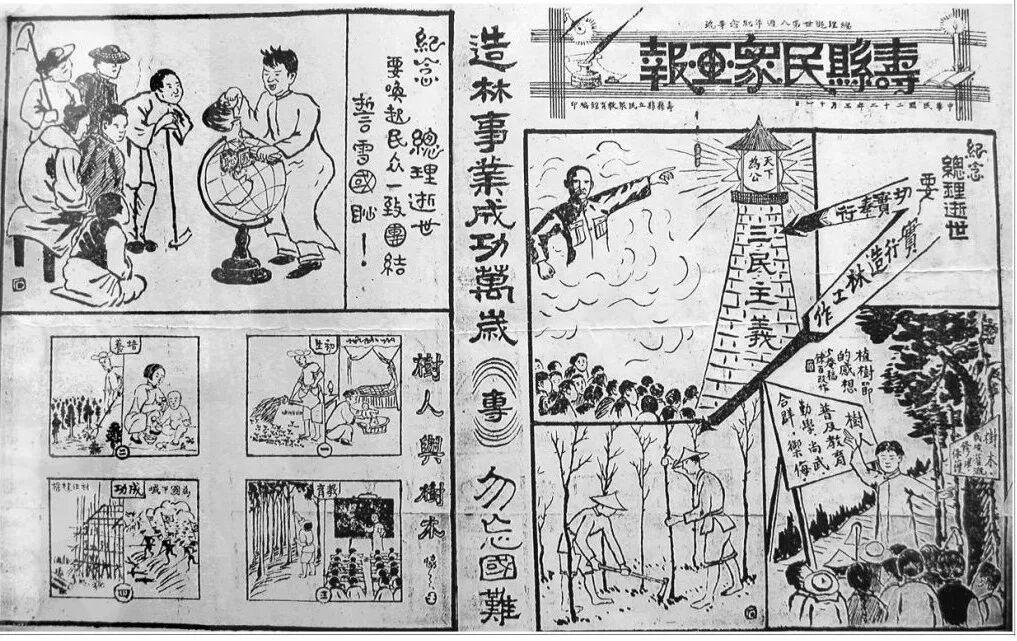 總理逝世第八週年紀念專號
壽縣民衆畫報
中華民國二十二年三月十二日
壽縣縣立民衆教育館編印
紀念
總理逝世
要
切實奉行
實行造林工作
天下為公
三民主義
植樹節
的感想
樹人
普及教育
勤學尚武
合群禦侮
樹木
造林事業成功萬歲
專
勿忘國難
紀念 總理逝世
要喚起民众一致團結
誓雪國恥！
樹人與樹木
初生
一
培養
二
教育
三
成功
為國干城
四